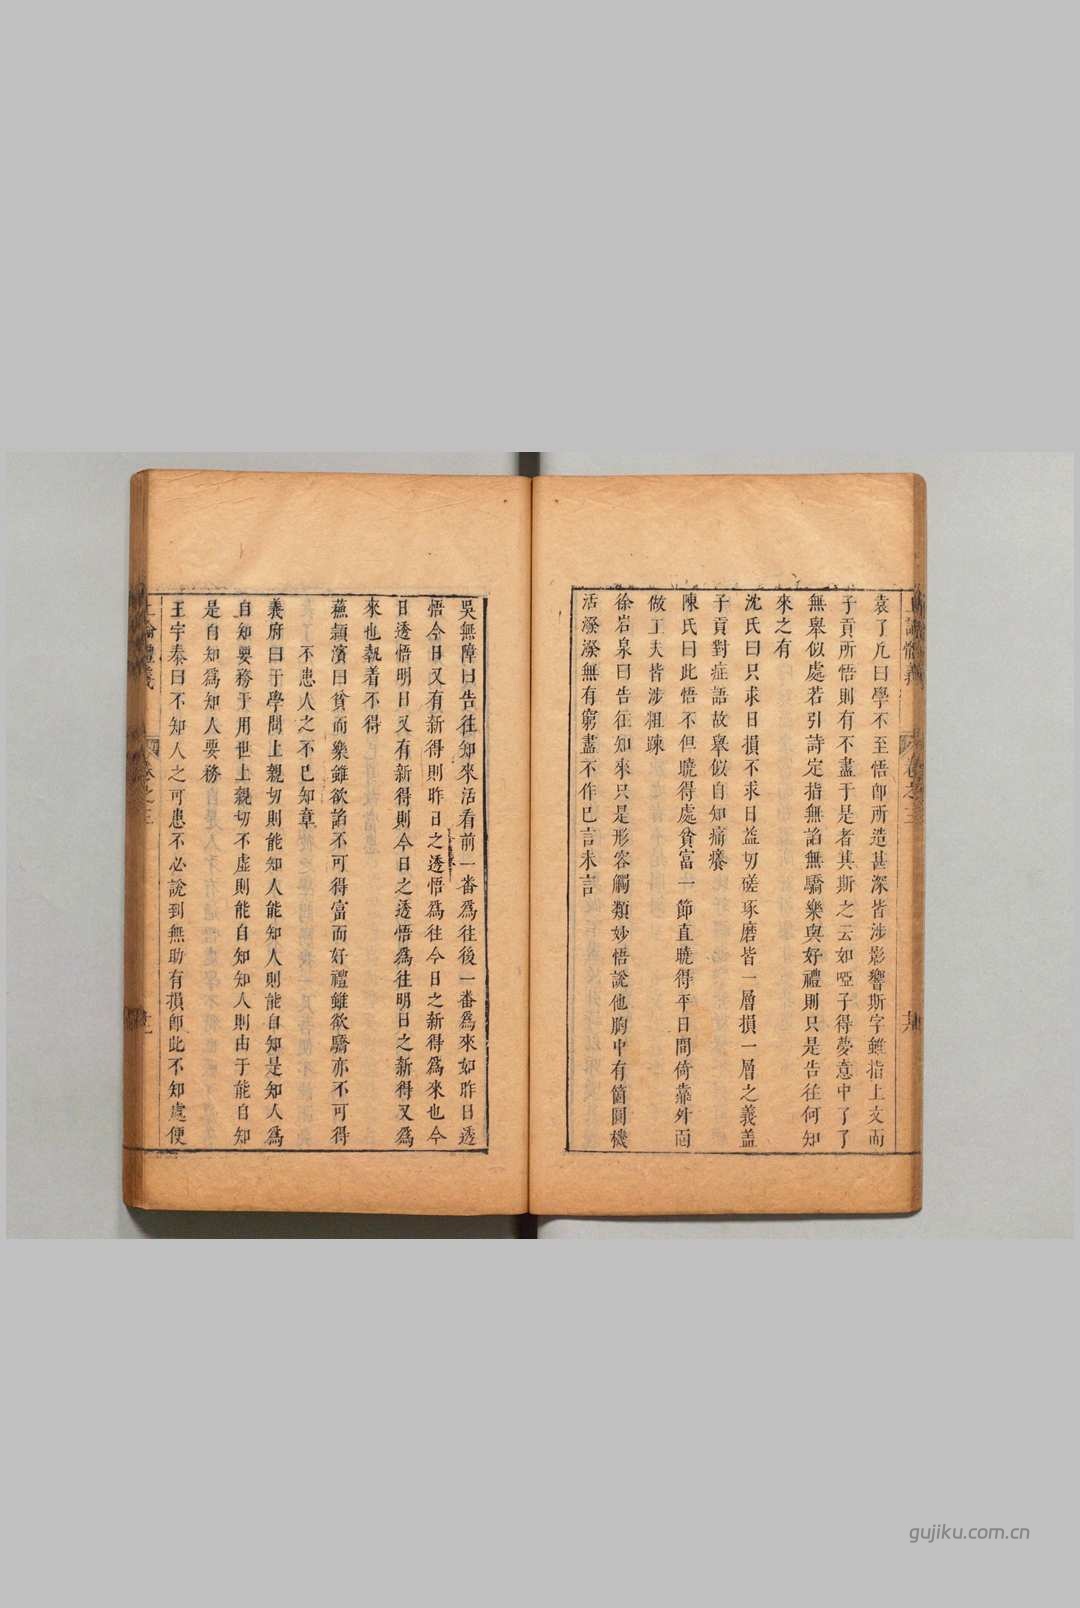 袁了凡曰學不至悟卽所造甚深皆涉影響斯字雖指上文而
子貢所悟則有不盡于是者其斯之云如啞子得夢意中了了
無舉似處若引詩定指無諂無驕樂與好禮則只是告往何知
來之有
沈氏曰只求日損不求日益切磋琢磨皆一層損一層之義盖
子貢對症語故舉似自知痛癢
陳氏曰此悟不但曉得處貧富一節直曉得平日間倚靠外面
做工夫皆涉粗踈
徐岩泉曰告往知來只是形容觸類妙悟說他胸中有箇圓機
活潑潑無有窮盡不作已言未言
吳無障曰告往知來活看前一番爲往後一番爲來如昨日透
悟今日又有新得則昨日之透悟爲往今日之新得爲來也今
日透悟明日又有新得則今日之透悟爲往明日之新得又爲
來也執着不得
蘓潁濱曰貧而樂雖欲諂不可得富而好禮雖欲驕亦不可得
不患人之不已知章
義府曰于學問上親切則能知人能知人則能自知是知人爲
自知要務于用世上親切不虛則能自知知人則由于能自知
是自知爲知人要務
王宇泰曰不知人之可患不必說到無助有損卽此不知處便
二論體義
卷之三
gujiku.com.cn